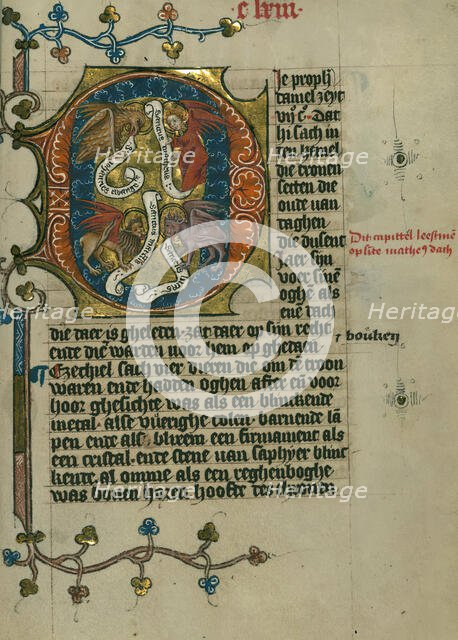 c lxiii·
Die prophe
daniel zeyt
vij c̄. Dat
hi sach in
den hemel
die tronen
setten die
oude van
daghen
die dusent
iaer sijn
voer sinē
oghē als
enē dach
die daer is gheleden. zat daer op sijn recht
ende die waerden voor hem op ghedaen
Ezechiel sach vier dieren die om dē troon
waren ende hadden oghen after en̄ voor
hoor ghesichte was als een blinckende
metal. alse vuerighe colen. barnende lā
pen ende als blixem een firmament als
een cristal. ende stene van saphyer blint
kente. al omme als een reghenboghe
was boven
Sanctus matheus
Sanctus iohannes
Sanctus marcus
Sanctus lucas
Dit capittel leestmē
op sinte matheus dach
boucken
Heritage
Heritage
Heritage
Heritage
Heritage
Heritage